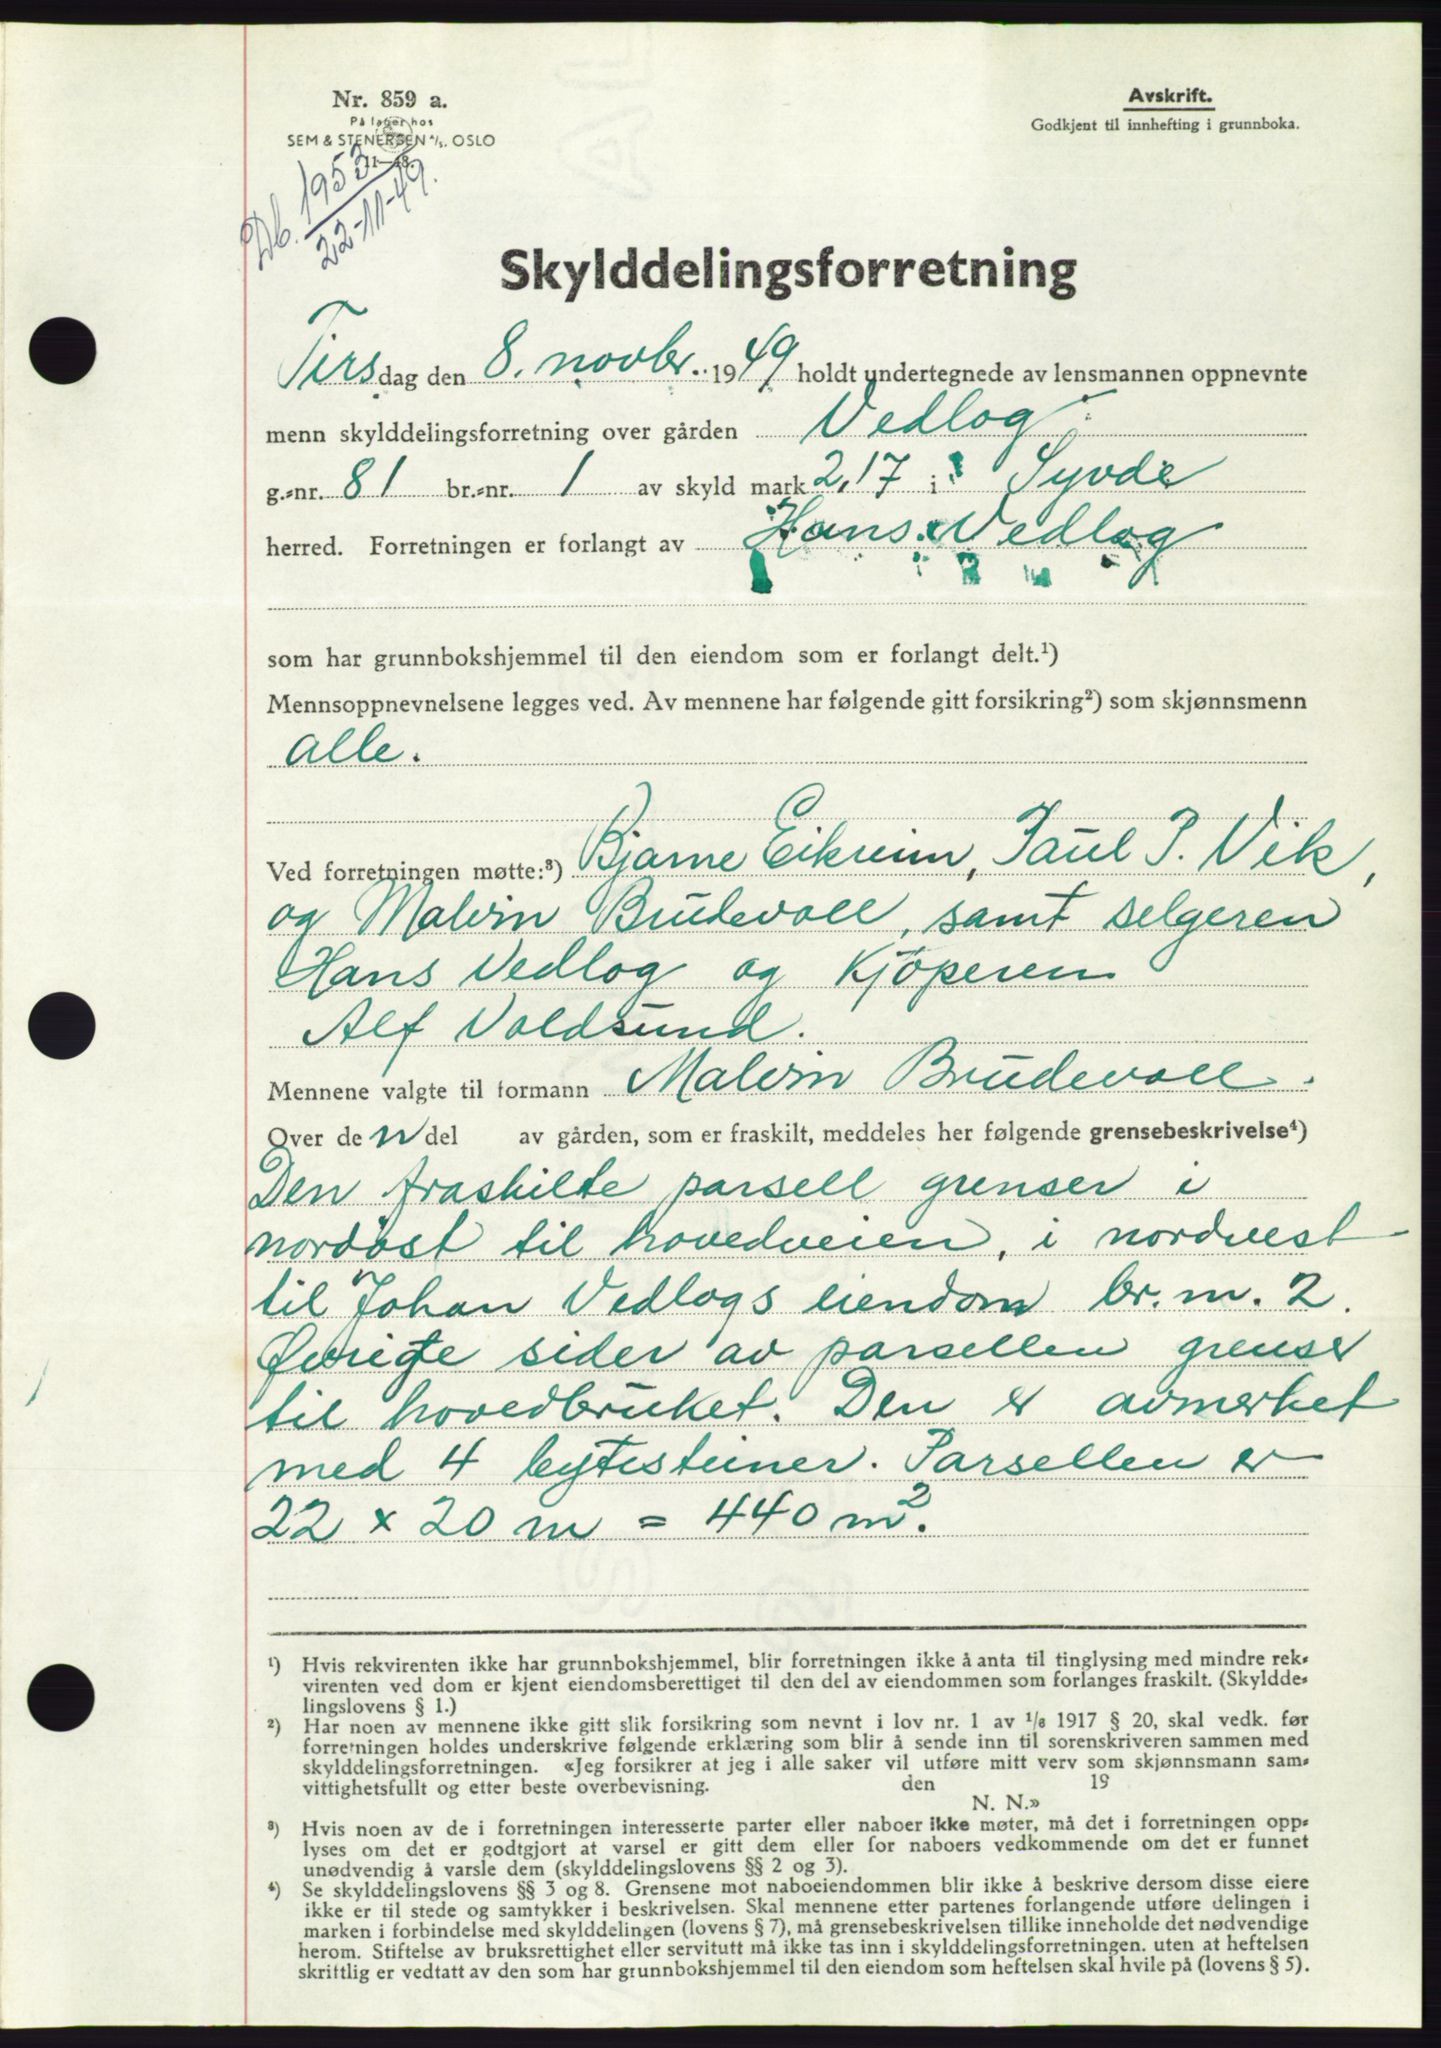 Nr. 859 a.
På lager hos
SEM & STENERSEN A/S. OSLO
11—48.
Db. 1953
22-11-49.
Avskrift.
Godkjent til innhefting i grunnboka.
Skylddelingsforretning
Tirsdag den 8. novbr. 1949 holdt undertegnede av lensmannen oppnevnte
menn skylddelingsforretning over gården Vedlog
g.=nr. 81 br.=nr. 1 av skyld mark 2,17 i Syvde
herred. Forretningen er forlangt av Hans Vedlog
som har grunnbokshjemmel til den eiendom som er forlangt delt.¹)
Mennsoppnevnelsene legges ved. Av mennene har følgende gitt forsikring²) som skjønnsmenn
alle.
Ved forretningen møtte:³) Bjarne Eikreim, Paul P. Vik,
og Malvin Brudevoll, samt selgeren
Hans Vedlog og Kjøperen
Alf Voldsund.
Mennene valgte til formann Malvin Brudevoll.
Over den del av gården, som er fraskilt, meddeles her følgende grensebeskrivelse⁴)
Den fraskilte parsell grenser i
nordøst til hovedveien, i nordvest
til Johan Vedlogs eiendom br. nr. 2.
Øvrige sider av parsellen grenser
til hovedbruket. Den er avmerket
med 4 bytesteiner. Parsellen er
22 x 20 m = 440 m².
¹) Hvis rekvirenten ikke har grunnbokshjemmel, blir forretningen ikke å anta til tinglysing med mindre rek=
virenten ved dom er kjent eiendomsberettiget til den del av eiendommen som forlanges fraskilt. (Skyldde=
lingslovens § 1.)
²) Har noen av mennene ikke gitt slik forsikring som nevnt i lov nr. 1 av 1/6 1917 § 20, skal vedk. før
forretningen holdes underskrive følgende erklæring som blir å sende inn til sorenskriveren sammen med
skylddelingsforretningen. «Jeg forsikrer at jeg i alle saker vil utføre mitt verv som skjønnsmann sam=
vittighetsfullt og etter beste overbevisning. den 19
N. N.»
³) Hvis noen av de i forretningen interesserte parter eller naboer ikke møter, må det i forretningen opp=
lyses om det er godtgjort at varsel er gitt dem eller for naboers vedkommende om det er funnet
unødvendig å varsle dem (skylddelingslovens §§ 2 og 3).
⁴) Se skylddelingslovens §§ 3 og 8. Grensene mot naboeiendommen blir ikke å beskrive dersom disse eiere
ikke er til stede og samtykker i beskrivelsen. Skal mennene etter partenes forlangende utføre delingen i
marken i forbindelse med skylddelingen (lovens § 7), må grensebeskrivelsen tillike inneholde det nødvendige
herom. Stiftelse av bruksrettighet eller servitutt må ikke tas inn i skylddelingsforretningen. uten at heftelsen
skriftlig er vedtatt av den som har grunnbokshjemmel til den eiendom som heftelsen skal hvile på (lovens § 5).